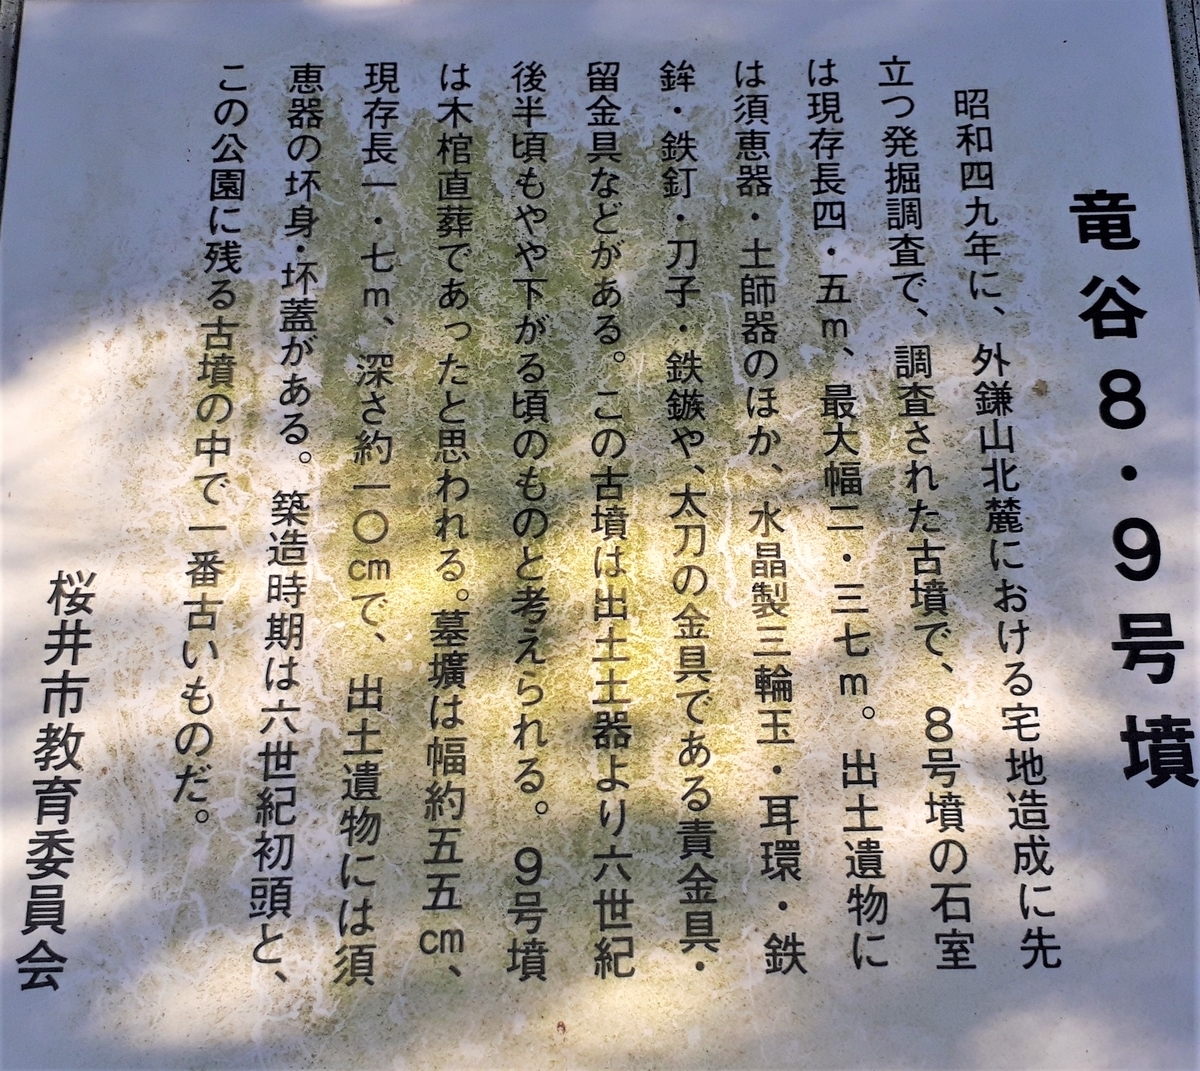 竜谷8・9号墳
昭和四九年に、外鎌山北麓における宅地造成に先
立つ発掘調査で、調査された古墳で、8号墳の石室
は現存長四・五m、最大幅二・三七m。出土遺物に
は須恵器・土師器のほか、水晶製三輪玉・耳環・鉄
鉾・鉄釘・刀子・鉄鏃や、太刀の金具である責金具・
留金具などがある。この古墳は出土土器より六世紀
後半頃もやや下がる頃のものと考えられる。9号墳
は木棺直葬であったと思われる。墓壙は幅約五五㎝、
現存長一・七m、深さ約一〇㎝で、出土遺物には須
恵器の坏身・坏蓋がある。築造時期は六世紀初頭と、
この公園に残る古墳の中で一番古いものだ。
桜井市教育委員会